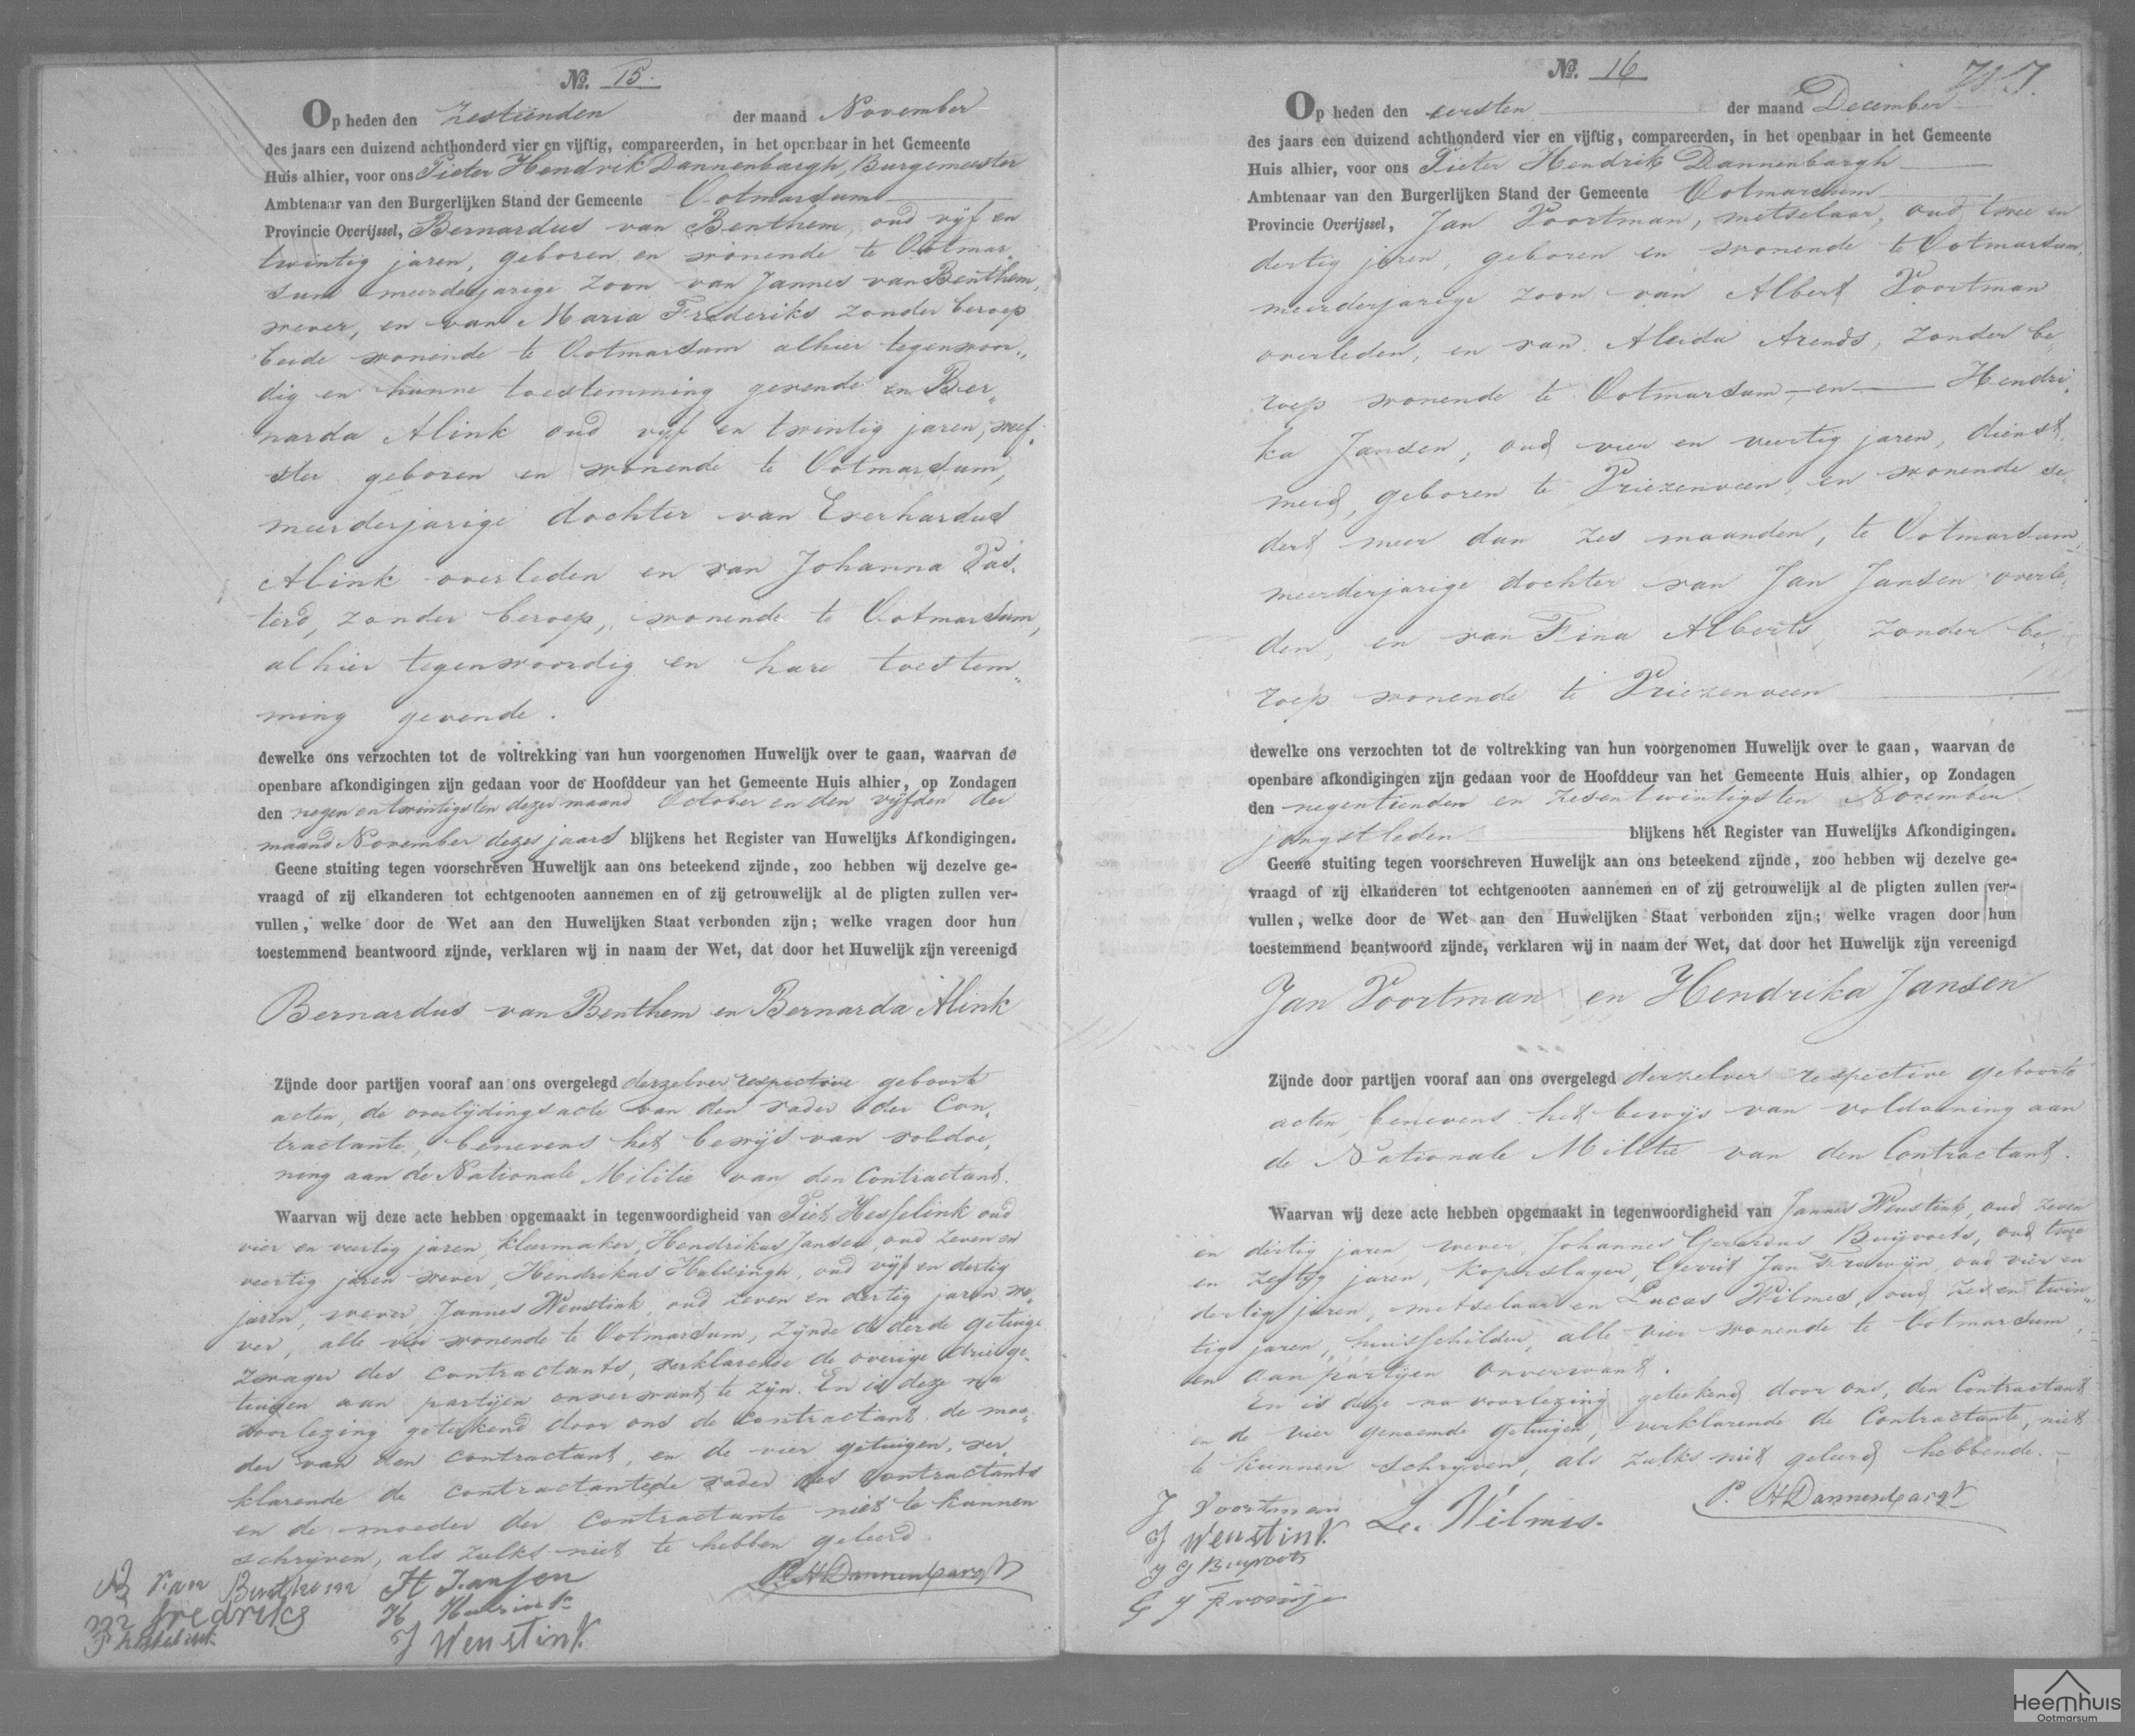 No. 15.
Op heden den Zestienden der maand November
des jaars een duizend achthonderd vier en vijftig, compareerden, in het openbaar in het Gemeente
Huis alhier, voor ons Pieter Hendrik Dannenbargh, Burgemeester
Ambtenaar van den Burgerlijken Stand der Gemeente Ootmarsum
Provincie Overijssel, Bernardus van Benthem, oud vijf en
twintig jaren, geboren en wonende te Ootmar„
sum meerderjarige zoon van Jannes van Benthem,
wever, en van Maria Frederiks zonder beroep
beide wonende te Ootmarsum alhier tegenwoor„
dig en hunne toestemming gevende en Ber„
narda Alink oud vijf en twintig jaren, weef„
ster geboren en wonende te Ootmarsum,
meerderjarige dochter van Everhardus
Alink overleden en van Johanna Pas„
ters, zonder beroep, wonende te Ootmarsum,
alhier tegenwoordig en hare toestem„
ming gevende.
dewelke ons verzochten tot de voltrekking van hun voorgenomen Huwelijk over te gaan, waarvan de
openbare afkondigingen zijn gedaan voor de Hoofddeur van het Gemeente Huis alhier, op Zondagen
den negen en twintigsten dezer maand October en den vijfden der
maand November dezes jaars blijkens het Register van Huwelijks Afkondigingen.
Geene stuiting tegen voorschreven Huwelijk aan ons beteekend zijnde, zoo hebben wij dezelve ge-
vraagd of zij elkanderen tot echtgenooten aannemen en of zij getrouwelijk al de pligten zullen ver-
vullen, welke door de Wet aan den Huwelijken Staat verbonden zijn; welke vragen door hun
toestemmend beantwoord zijnde, verklaren wij in naam der Wet, dat door het Huwelijk zijn vereenigd
Bernardus van Benthem en Bernarda Alink
Zijnde door partijen vooraf aan ons overgelegd derzelver respective geboorte
acten, de overlijdingsacte van den vader der Con„
tractante, benevens het bewijs van voldoe„
ning aan de Nationale Militie van den Contractant.
Waarvan wij deze acte hebben opgemaakt in tegenwoordigheid van Piet Hesselink oud
vier en veertig jaren, kleermaker, Hendrikus Jansen, oud zeven en
veertig jaren wever, Hendrikus Halsingh, oud vijf en dertig
jaren, wever, Jannes Weustink, oud zeven en dertig jaren we„
ver, alle vier wonende te Ootmarsum, zijnde de derde getuige
zwager des contractants, verklarende de overige drie ge„
tuigen aan partijen onverwant te zijn. En is deze na
voorlezing geteekend door ons de contractant, de moe„
der van den contractant, en de vier getuigen, ver„
klarende de contractante, de vader des contractants
en de moeder der contractante niet te kunnen
schrijven, als zulks niet te hebben geleerd.
B van Benthem
H Jansen
P. H Dannenbargh
m fredriks
H
P Hesselink
J Weustink
No. 16
Op heden den eersten der maand December
des jaars een duizend achthonderd vier en vijftig, compareerden, in het openbaar in het Gemeente
Huis alhier, voor ons Pieter Hendrik Dannenbargh
Ambtenaar van den Burgerlijken Stand der Gemeente Ootmarsum
Provincie Overijssel, Jan Voortman, metselaar, oud twee en
dertig jaren, geboren en wonende te Ootmarsum,
meerderjarige zoon van Albert Voortman
overleden, en van Aleida Arends, zonder be„
roep wonende te Ootmarsum, en Hendri„
ka Jansen, oud vier en veertig jaren, dienst„
meid, geboren te Vriezenveen, en wonende se„
dert meer dan zes maanden, te Ootmarsum,
meerderjarige dochter van Jan Jansen overle„
den, en van Fina Alberts, zonder be„
roep wonende te Vriezenveen
dewelke ons verzochten tot de voltrekking van hun voorgenomen Huwelijk over te gaan, waarvan de
openbare afkondigingen zijn gedaan voor de Hoofddeur van het Gemeente Huis alhier, op Zondagen
den negentienden en zesentwintigsten November
jongstleden blijkens het Register van Huwelijks Afkondigingen.
Geene stuiting tegen voorschreven Huwelijk aan ons beteekend zijnde, zoo hebben wij dezelve ge-
vraagd of zij elkanderen tot echtgenooten aannemen en of zij getrouwelijk al de pligten zullen ver-
vullen, welke door de Wet aan den Huwelijken Staat verbonden zijn; welke vragen door hun
toestemmend beantwoord zijnde, verklaren wij in naam der Wet, dat door het Huwelijk zijn vereenigd
Jan Voortman en Hendrika Jansen
Zijnde door partijen vooraf aan ons overgelegd derzelver respective geboorte
acten, benevens het bewijs van voldoening aan
de Nationale Militie van den Contractant.
Waarvan wij deze acte hebben opgemaakt in tegenwoordigheid van Jannes Weustink, oud zeven
en dertig jaren wever, Johannes Gerardus Buijvoets, oud twee
en zestig jaren, koperslager, Gerrit Jan Frowijn, oud vier en
dertig jaren, metselaar en Lucas Wilmes, oud zes en twin„
tig jaren, huisschilder, alle vier wonende te Ootmarsum,
en aan partijen onverwant.
En is deze na voorlezing geteekend door ons, den Contractant
en de vier genoemde getuigen, verklarende de Contractante, niet
te kunnen schrijven, als zulks niet geleerd hebbende.
J Voortman
P. H Dannenbargh
J Weustink
L. Wilmes.
J G Buijvoets
G J Frowijn
Heemhuis
Ootmarsum